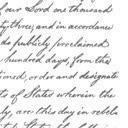 our Lord one thousand
ty three, and in accordance
do publicly proclaimed
hundred days, from the
tioned, order and designate
ts of States wherein the
ly, are this day in rebel